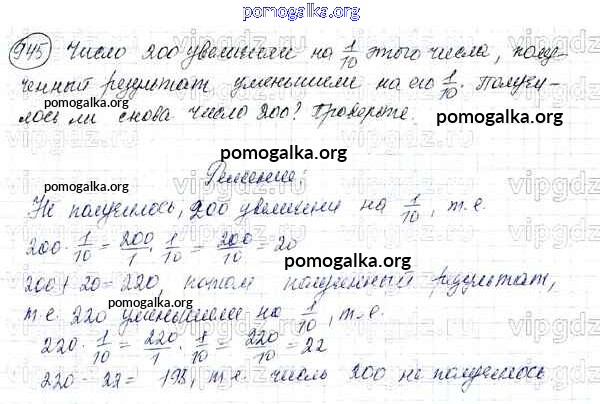 pomogalka.org
945 Число 200 увеличили на 1/10 этого числа, полу-
ченный результат уменьшили на его 1/10. Получи-
лось ли снова число 200? Проверьте.
pomogalka.org
pomogalka.org
pomogalka.org
Решение:
Не получилось, 200 увеличили на 1/10, т.е.
200 · 1/10 = 200/1 · 1/10 = 200/10 = 20
pomogalka.org
pomogalka.org
200 + 20 = 220, потом полученный результат,
pomogalka.org
т.е. 220 уменьшили на 1/10, т.е.
220 · 1/10 = 220/1 · 1/10 = 220/10 = 22
pomogalka.org
220 - 22 = 198, т.е. число 200 не получилось
vipgdz.ru